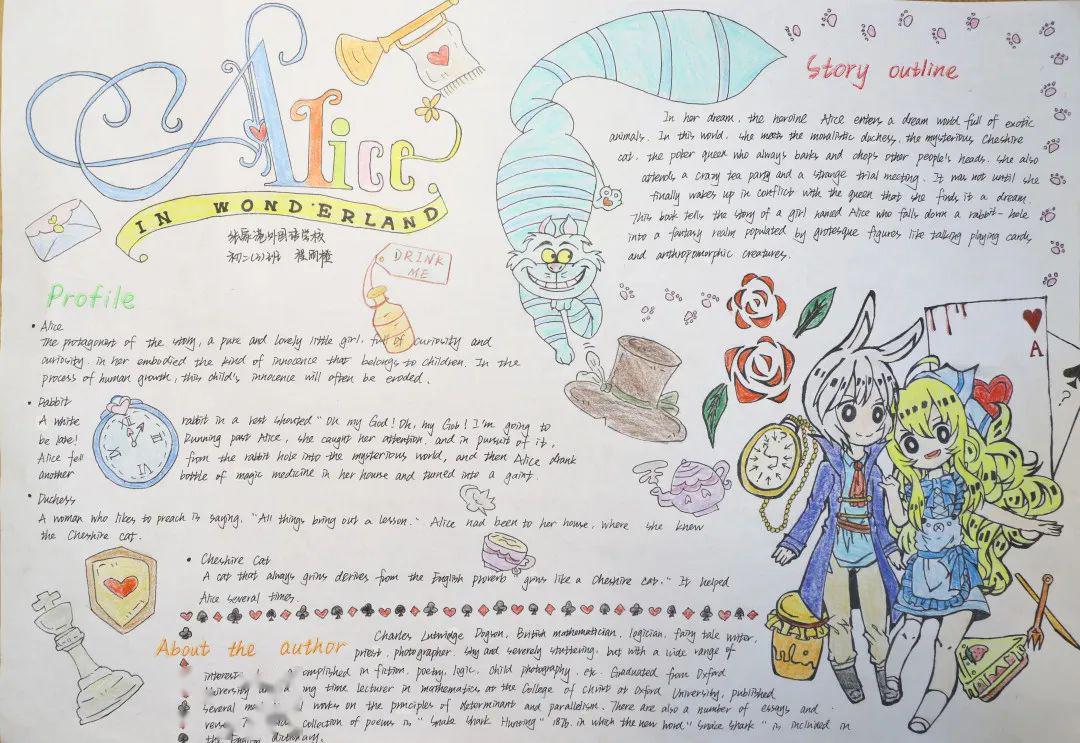 Alice
IN WONDERLAND
张家港外国语学校
初二(3)班
DRINK
ME
Story outline
In her dream, the heroine Alice enters a dream world full of exotic
animals. In this world, she meets the moralistic duchess, the mysterious Cheshire
cat, the poker queen who always barks and chops other people's heads. She also
attends a crazy tea party and a strange trial meeting. It was not until she
finally wakes up in conflict with the queen that she finds it a dream.
This book tells the story of a girl named Alice who falls down a rabbit-hole
into a fantasy realm populated by grotesque figures like talking playing cards
and anthropomorphic creatures.
Profile
• Alice
The protagonist of the story, a pure and lovely little girl, full of curiosity and
curiosity. in her embodied the kind of innocence that belongs to children. In the
process of human growth, this child's innocence will often be eroded.
• Rabbit
A white rabbit in a vest shouted "Oh my God! Oh, my Gob! I'm going to
be late! Running past Alice, she caught her attention, and in pursuit of it,
Alice fell from the rabbit hole into the mysterious world, and then Alice drank
another bottle of magic medicine in her house and turned into a gaint.
• Duchess
A woman who likes to preach is saying, "All things bring out a lesson." Alice had been to her house, where she knew
the Cheshire cat.
• Cheshire Cat
A cat that always grins derives from the English proverb "grins like a Cheshire cat." It helped
Alice several times.
A
?
About the author
Charles Lutwidge Dogson, British mathematician, logician, fairy tale writer,
priest, photographer. shy and severely stuttering, but with a wide range of
interest complished in fiction, poetry, logic, child photography, etc. Graduated from Oxford
University ng time lecturer in mathematics at the College of Christ at Oxford University, published
several works on the principles of determinant and parallelism. There are also a number of essays and
collection of poems is "Snake Shark Hunting" 1876, in which the new word "Snake Shark" is included in
the English dictionary.